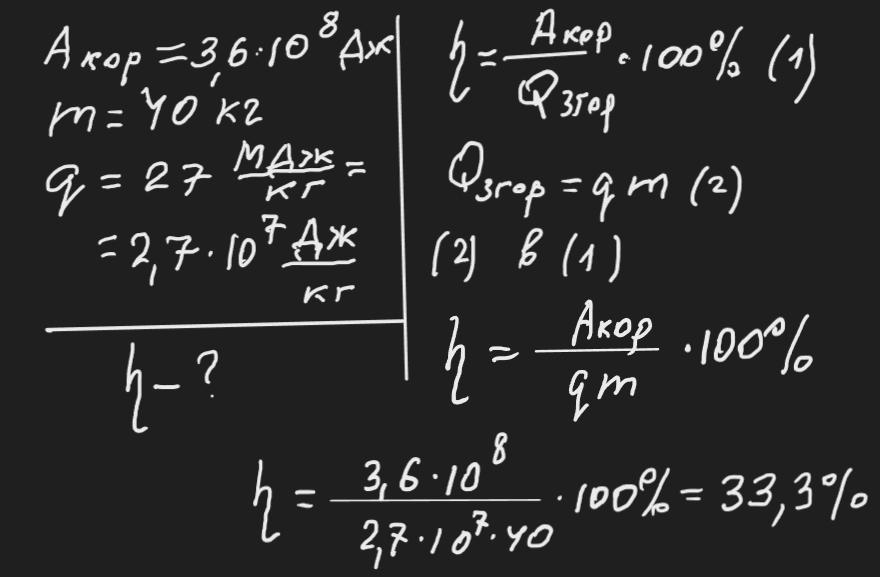 Aкор = 3,6·10⁸ Дж
m = 40 кг
q = 27 МДж/кг =
= 2,7·10⁷ Дж/кг
η – ?
η = Aкор/Qзгор · 100% (1)
Qзгор = qm (2)
(2) в (1)
η = Aкор/qm · 100%
η = 3,6·10⁸/2,7·10⁷·40 · 100% = 33,3%